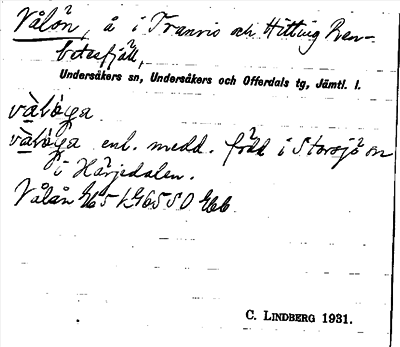 Vålån, å i Tranris och Hitting Ren-
betesfjäll,
Undersåkers sn, Undersåkers och Offerdals tg, Jämtl. l.
våløga
våløga enl. medd. född i Storsjö sn
i Härjedalen.
Vålån
C. LINDBERG 1931.